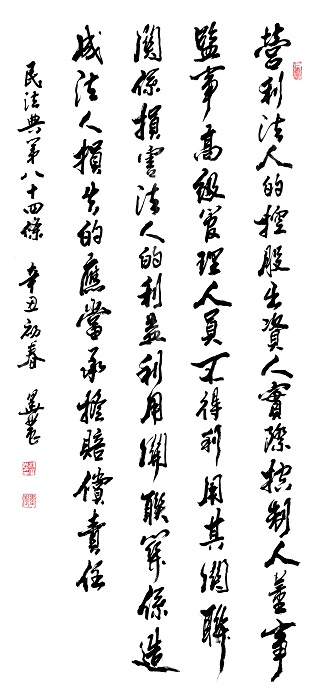 營利法人的控股出資人實際控制人董事
監事高級管理人員不得利用其關聯
關係損害法人的利益利用關聯關係造
成法人損失的應當承擔賠償責任
民法典第八十四條 辛丑初春